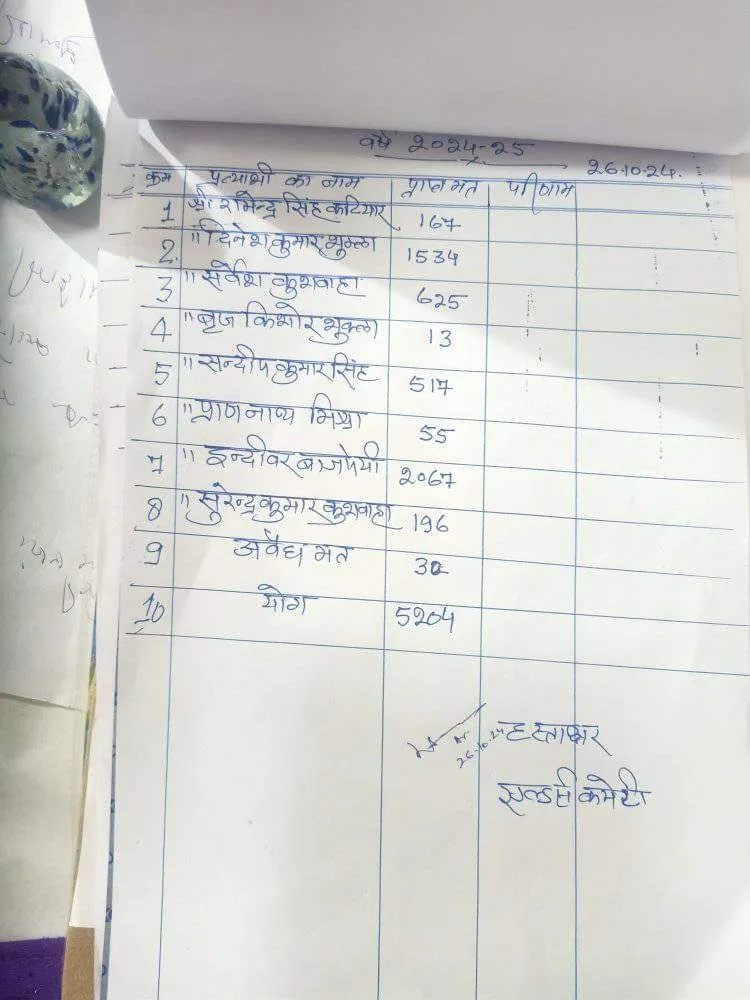 वर्ष 2024-25
26.10.24.
क्रम प्रत्याशी का नाम प्राप्त मत परिणाम
1 श्री रामेन्द्र सिंह कटियार 167
2. " दिनेश कुमार शुक्ला 1534
3 " सर्वेश कुशवाहा 625
4 " बृज किशोर शुक्ला 13
5 " सन्दीप कुमार सिंह 517
6 " प्राण नाथ मिश्रा 55
7 " इन्दीवर बाजपेयी 2067
8 " सुरेन्द्र कुमार कुशवाहा 196
9 अवैध मत 30
10 योग 5204
26.10.24
हस्ताक्षर
एल्डर्स कमेटी